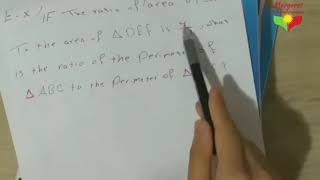 Ex/ IF The ratio of area of
To the area of Δ DEF is
is the ratio of the Perimeter of
Δ ABC to the Perimeter of Δ
Margaret